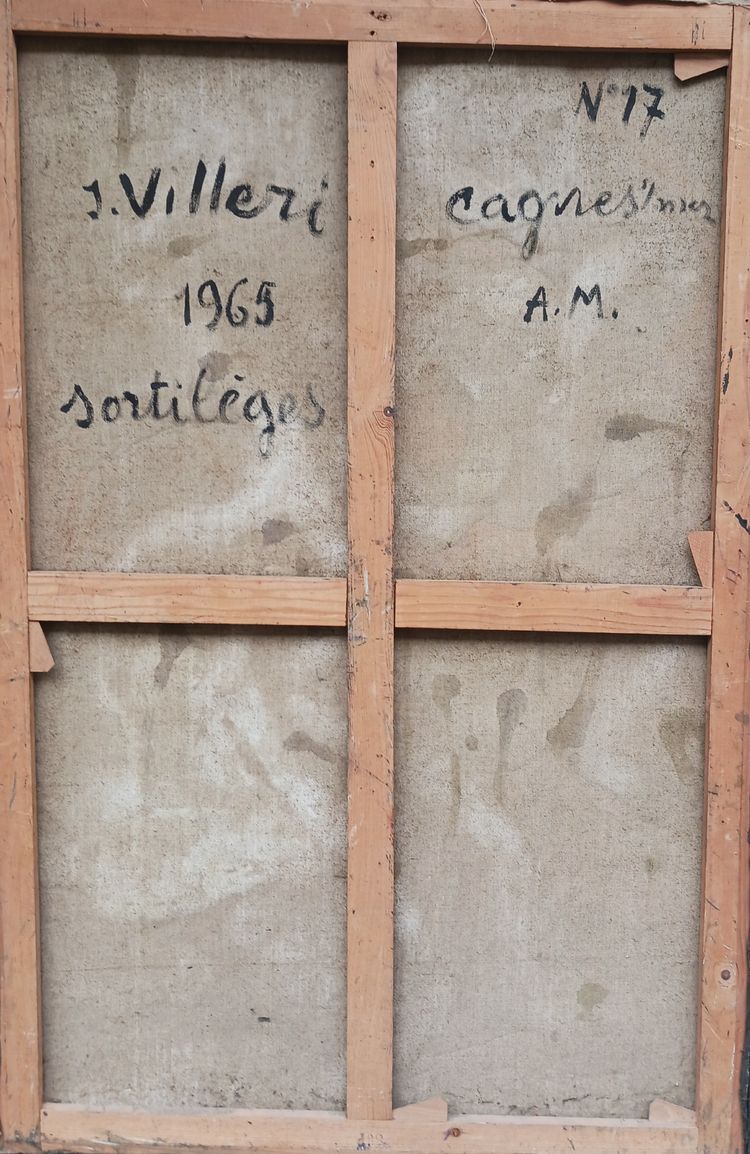 J. Villeri
1965
sortilèges
N° 17
cagnes s/mer
A.M.